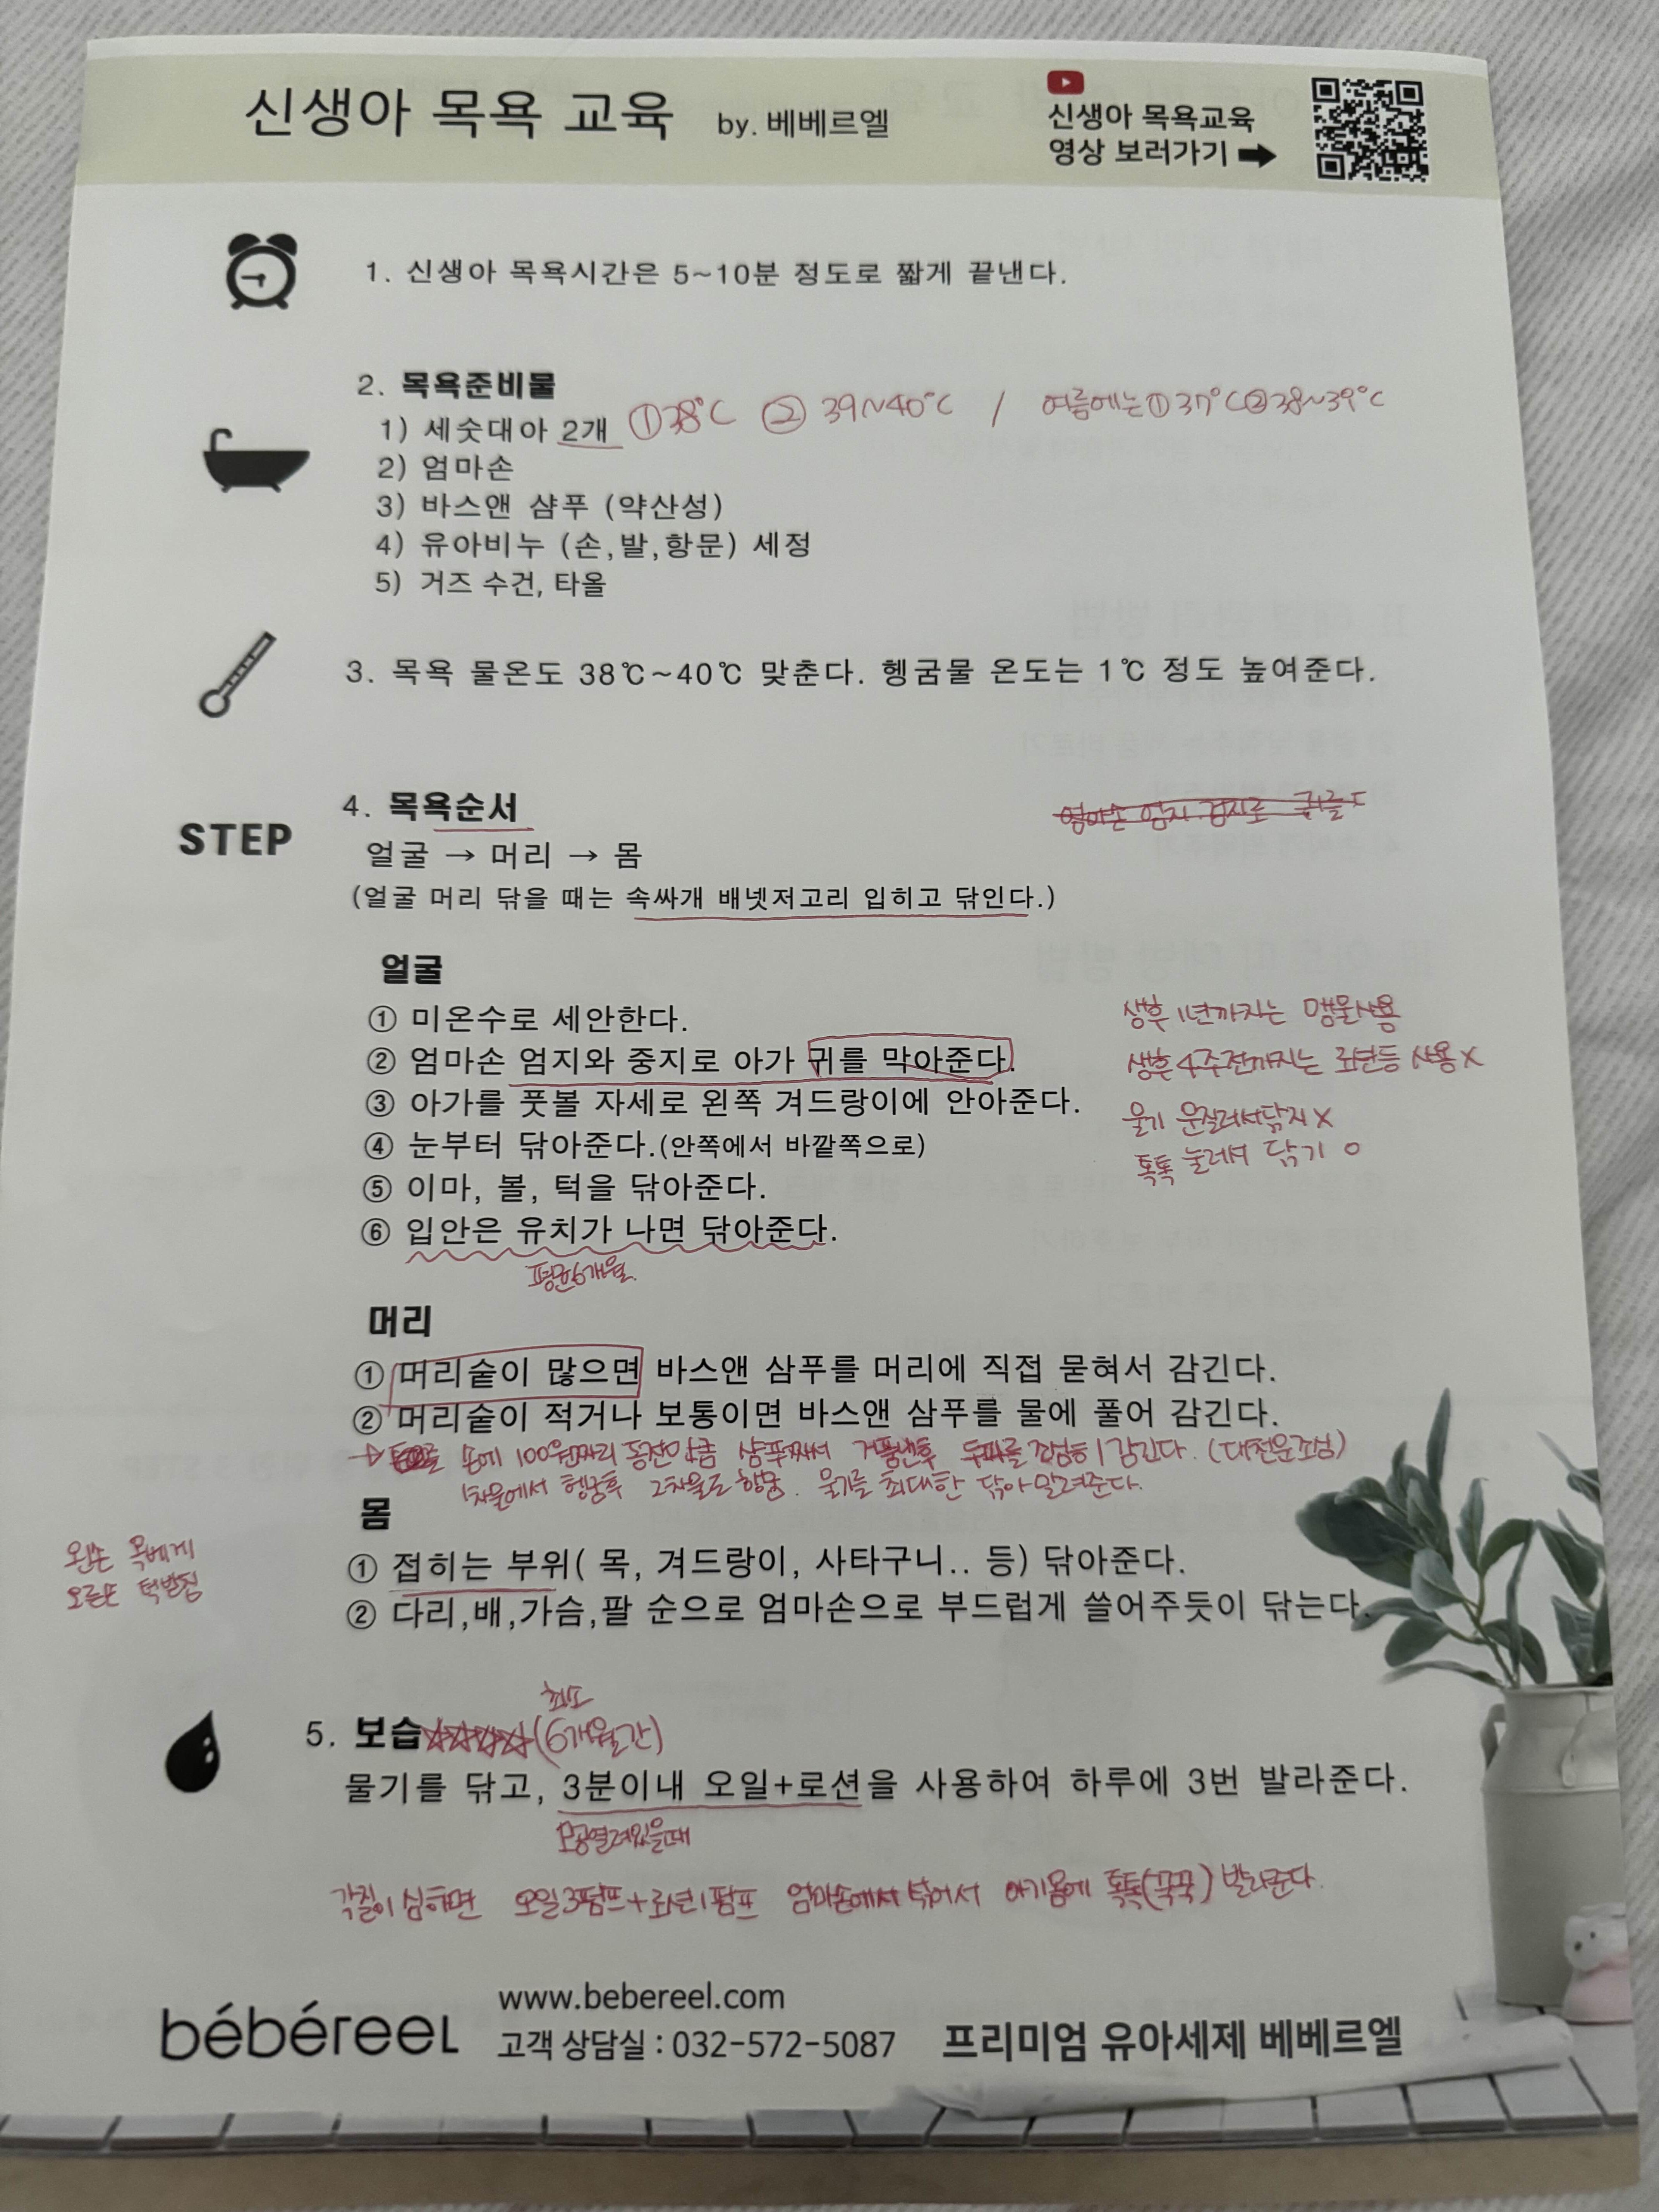 신생아 목욕 교육 by. 베베르엘
신생아 목욕교육
영상 보러가기 ➡
1. 신생아 목욕시간은 5~10분 정도로 짧게 끝낸다.
2. 목욕준비물
1) 세숫대야 2개 ① 38°C ② 39~40°C / 여름에는 ① 37°C ② 38~39°C
2) 엄마손
3) 바스앤 샴푸 (약산성)
4) 유아비누 (손,발,항문) 세정
5) 거즈 수건, 타올
3. 목욕 물온도 38℃~40℃ 맞춘다. 헹굼물 온도는 1℃ 정도 높여준다.
STEP
4. 목욕순서
얼굴 → 머리 → 몸
(얼굴 머리 닦을 때는 속싸개 배넷저고리 입히고 닦인다.)
얼굴
① 미온수로 세안한다.
② 엄마손 엄지와 중지로 아가 귀를 막아준다.
③ 아가를 풋볼 자세로 왼쪽 겨드랑이에 안아준다.
④ 눈부터 닦아준다.(안쪽에서 바깥쪽으로)
⑤ 이마, 볼, 턱을 닦아준다.
⑥ 입안은 유치가 나면 닦아준다.
평균 6개월.
생후 1년까지는 맹물사용
생후 4주전까지는 로션등 사용 X
물기 문질러서닦지 X
톡톡 눌러서 닦기 O
머리
① 머리숱이 많으면 바스앤 샴푸를 머리에 직접 묻혀서 감긴다.
② 머리숱이 적거나 보통이면 바스앤 샴푸를 물에 풀어 감긴다.
→ 손에 100원짜리 동전만큼 샴푸짜서 거품낸후 두피를 감긴다. (대천문조심)
1차물에서 헹굼후 2차물로 헹굼. 물기를 최대한 닦아 말려준다.
몸
왼손 목베게
오른손 턱받침
① 접히는 부위( 목, 겨드랑이, 사타구니.. 등) 닦아준다.
② 다리,배,가슴,팔 순으로 엄마손으로 부드럽게 쓸어주듯이 닦는다.
최소
5. 보습☆☆☆☆(6개월간)
물기를 닦고, 3분이내 오일+로션을 사용하여 하루에 3번 발라준다.
모공열려있을때
각질이 심하면 오일3펌프+로션1펌프 엄마손에서 섞어서 아기몸에 톡톡(꾹꾹) 발라준다.
bébéreel
www.bebereel.com
고객 상담실 : 032-572-5087
프리미엄 유아세제 베베르엘